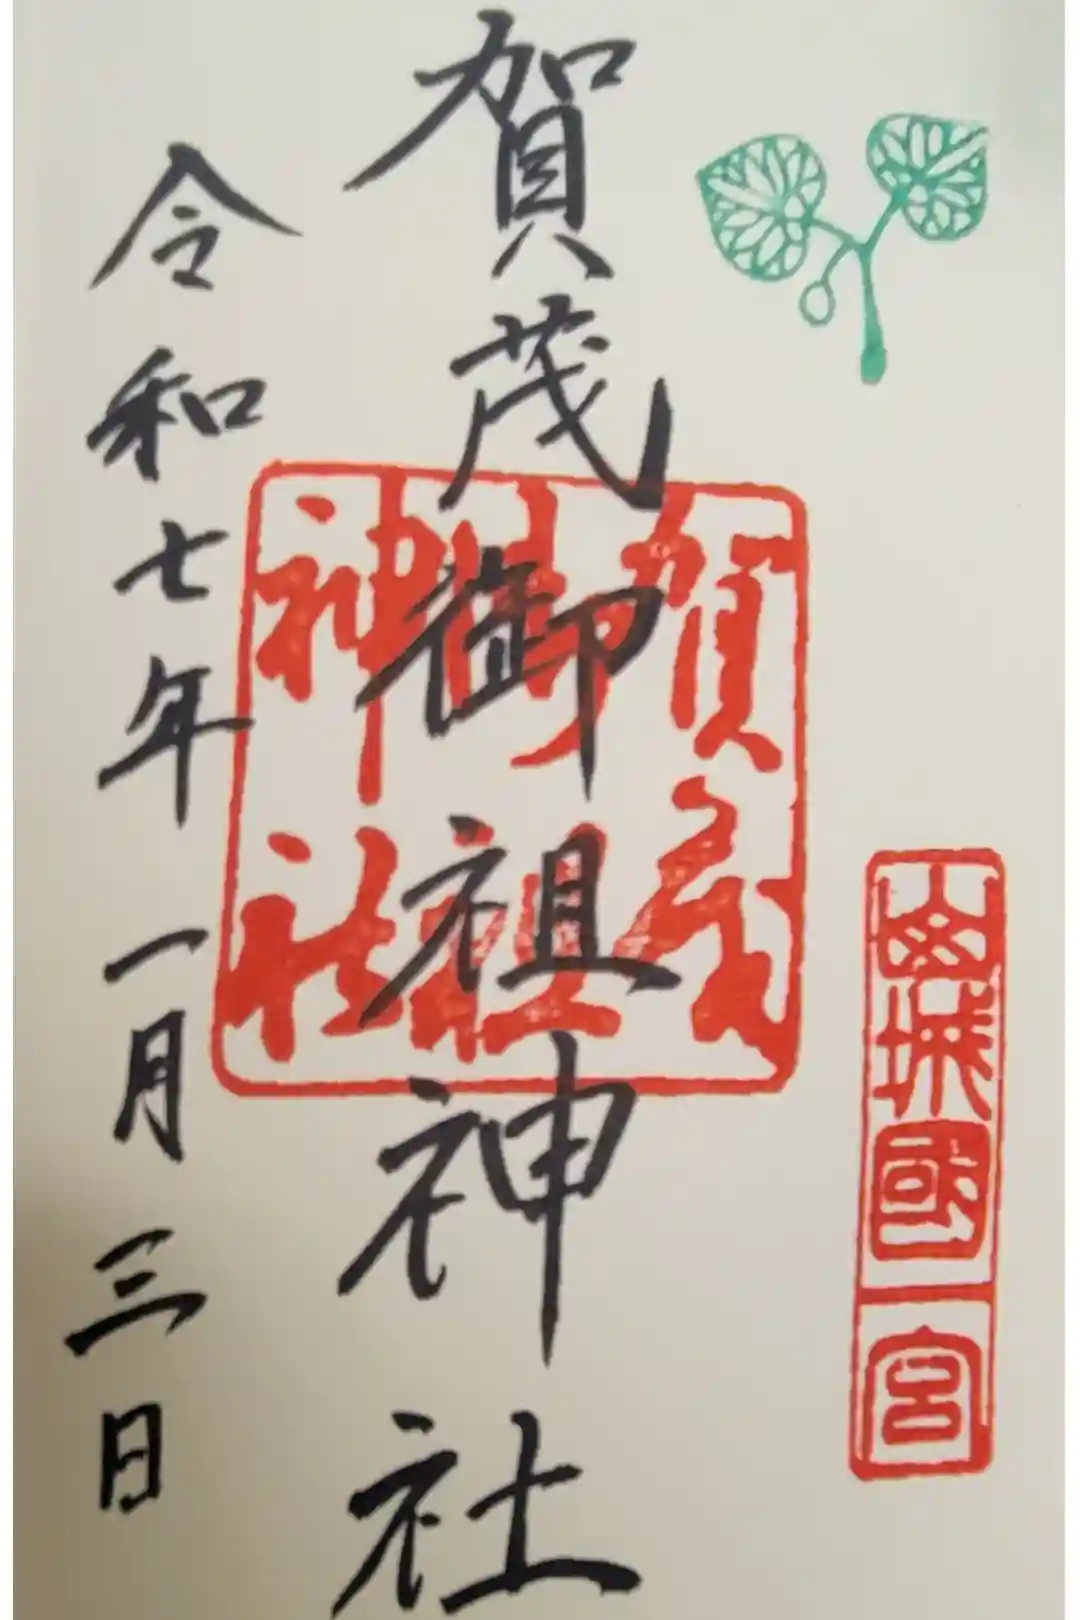 山城國一宮
賀茂御祖神社
賀茂
御祖
神社
令和七年一月三日